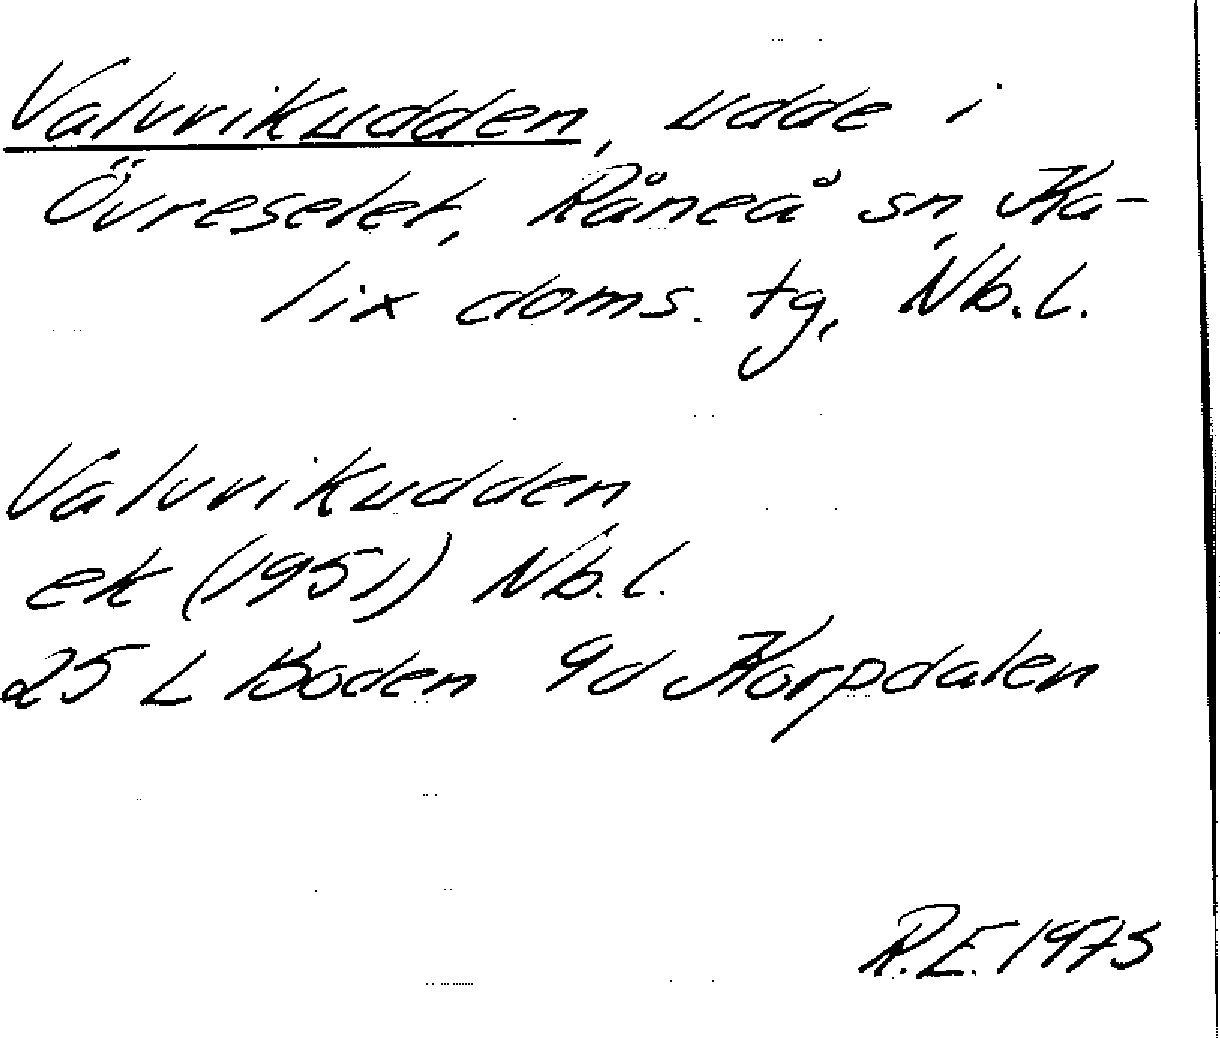 Valvvikudden, udde i
Övreselet, Råneå sn, Ka-
lix doms. tg, Nb.l.
Valvvikudden
ek (1951) Nb.l.
25 L Boden 9d Korpdalen
R.E. 1975